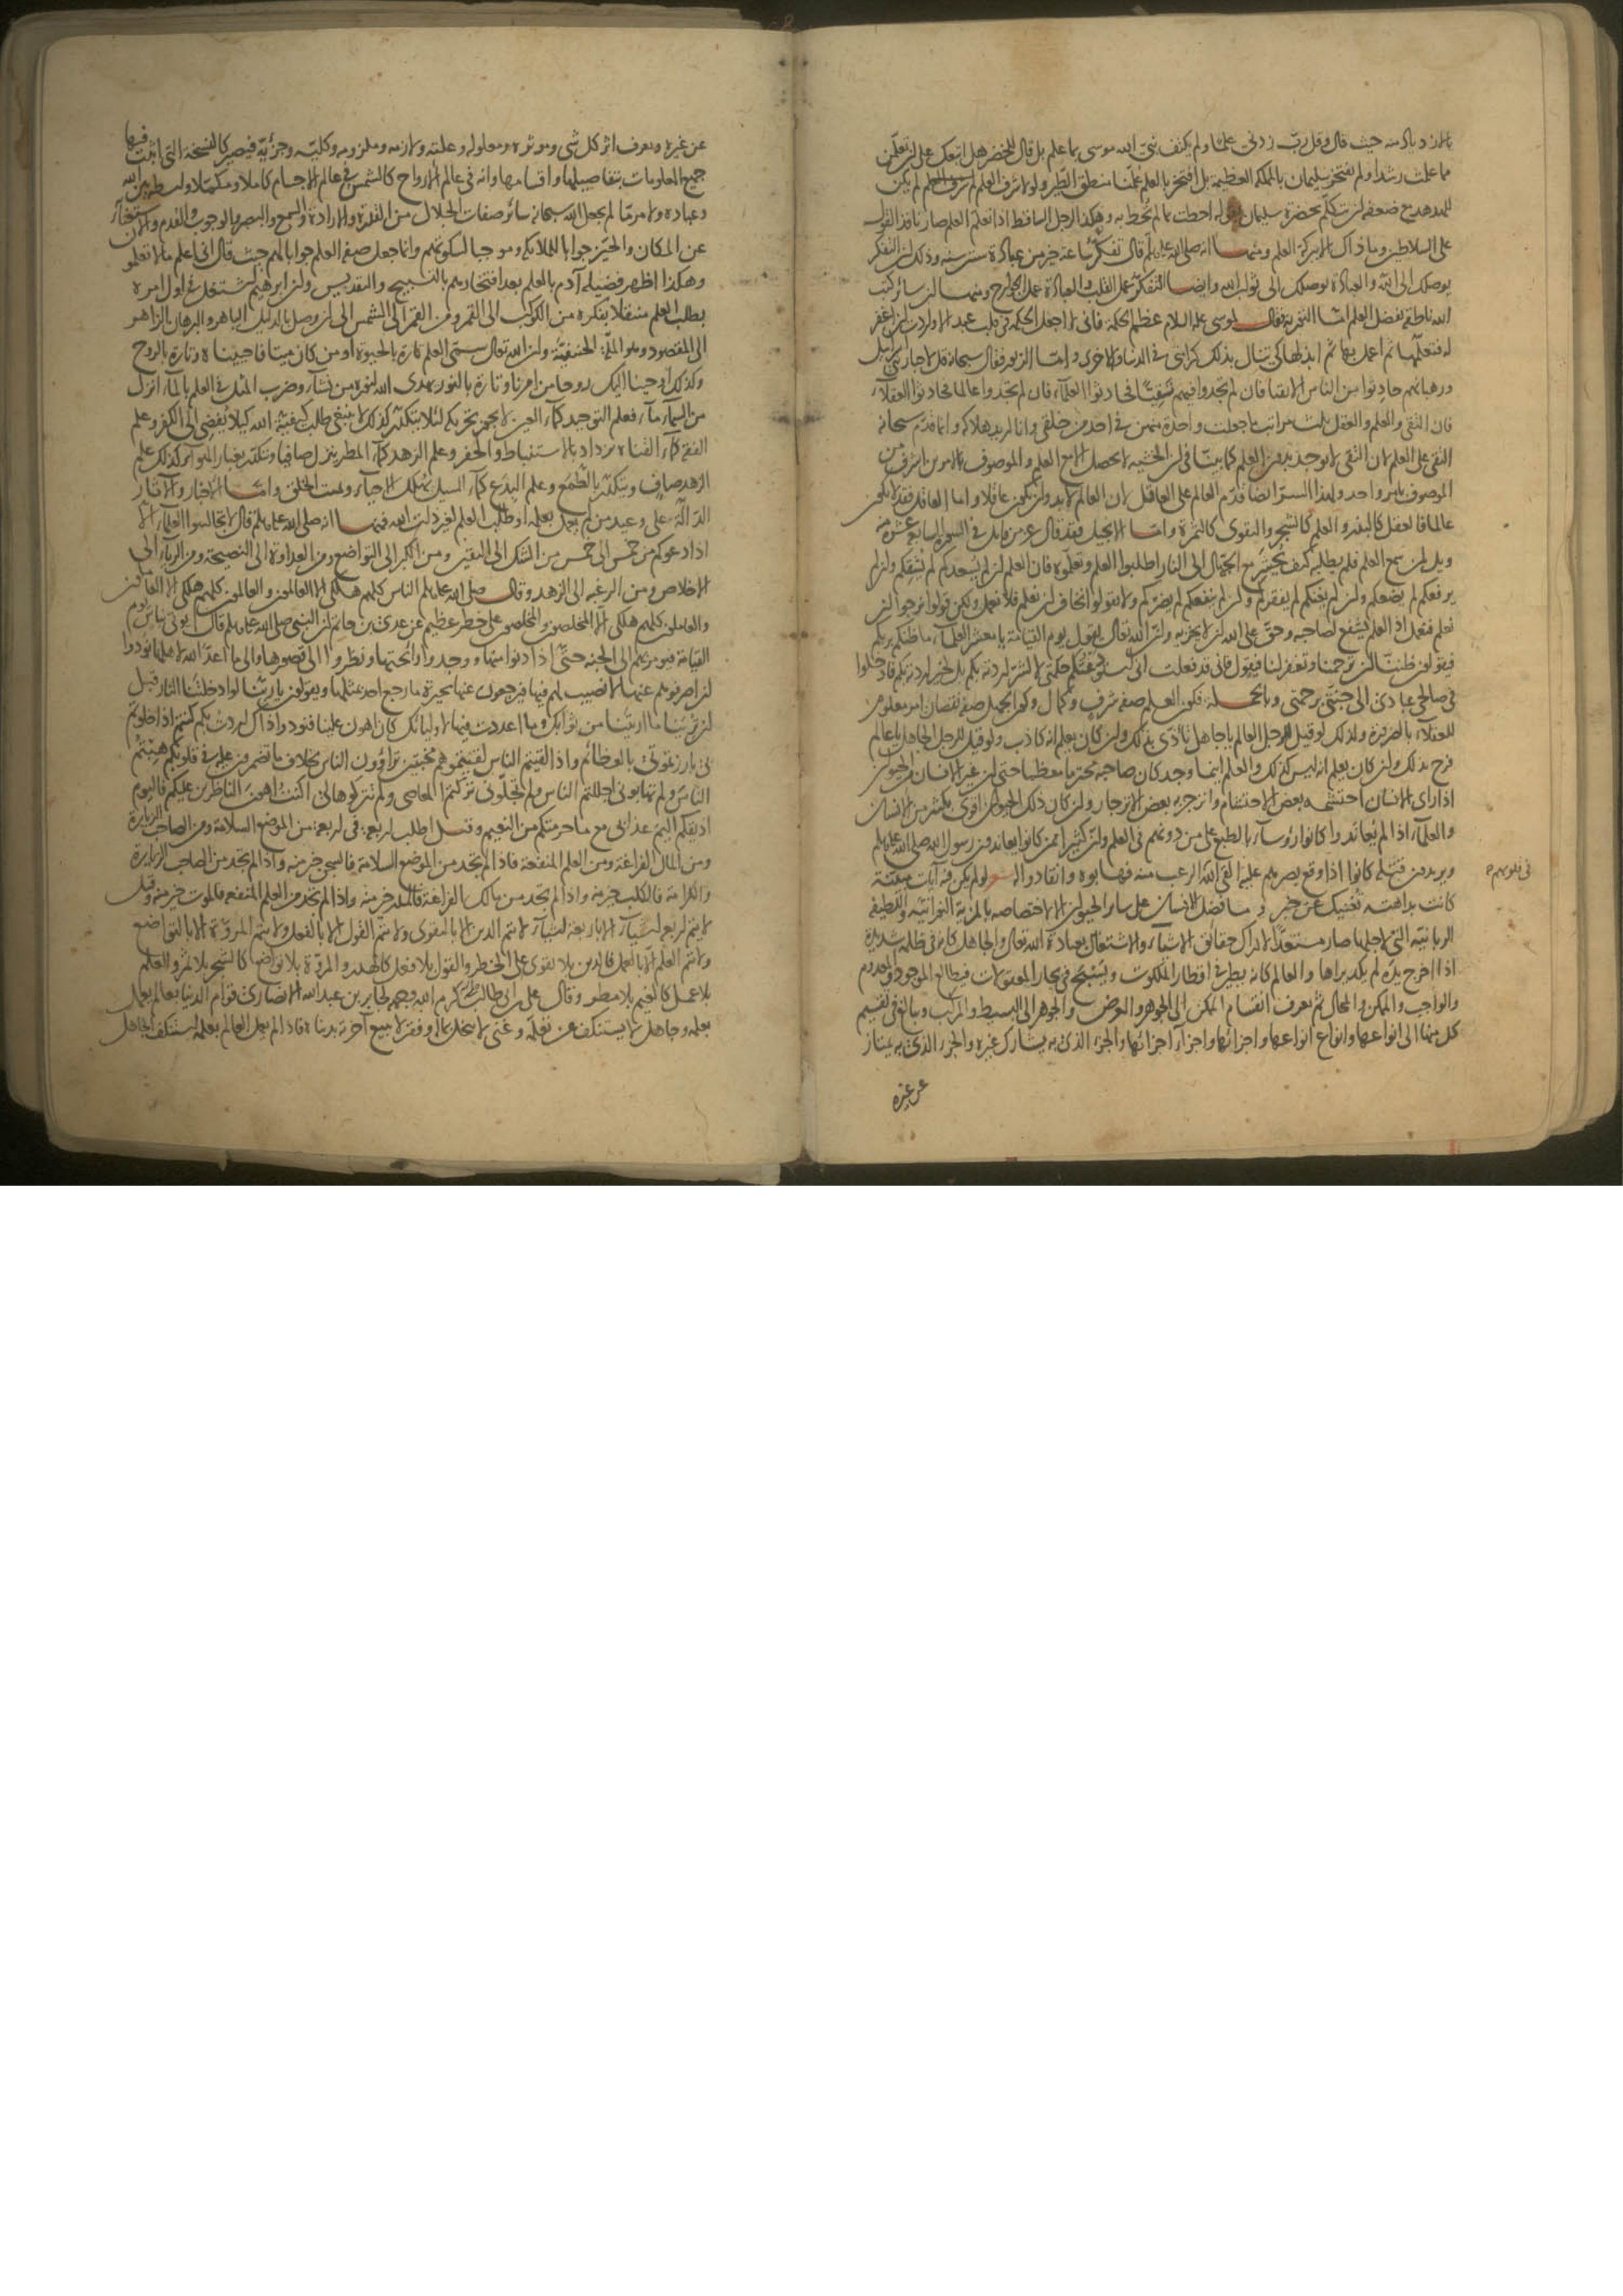 بالازدياد منه حيث قال وقل رب زدنى علما ولم يكتف نبى الله موسى بما علم بل قال للخضر هل اتبعك على ان تعلمن
مما علمت رشدا ولم يفتخر سليمان بالملك العظيمة بل افتخر بالعلم علمنا منطق الطير ولولا شرف العلم لم يكن
للهدهد مع ضعفه ان يتكلم بحضرة سليمان بقوله احطت بما لم تحط به وهكذا الرجل الساقط اذا تعلم العلم صار نافذ القول
على السلاطين وما ذاك الا ببركة العلم ومنها انه صلى الله عليه وسلم قال تفكر ساعة خير من عبادة ستين سنة وذلك لان التفكر
يوصلك الى الله والعبادة توصلك الى ثواب الله وايضا التفكر عمل القلب والعبادة عمل الجوارح ومنها ان سائر كتب
الله ناطقة بفضل العلم اما التورية فقال لموسى عليه السلام عظم الحكمة فانى لا اجعل الحكمة فى قلب عبد الا واردت ان اغفر
له فتعلمها ثم اعمل بها ثم ابذلها كى تنال بذلك كرامتى فى الدنيا والاخرى واما الزبور فقال سبحانه قل لاحبار بنى اسرائيل
ورهبانهم حادثوا من الناس الاتقيا فان لم تجدوا فيهم تقيا فحادثوا العلماء فان لم تجدوا عالما فحادثوا العقلاء
فان التقى والعلم والعقل ثلث مراتب ما جعلت واحدة منهن فى احد من خلقى وانا اريد هلاكه وانما قدم سبحانه
التقى على العلم لان التقى لا يوجد بدون العلم كما بينا فى ان الخشية لا تحصل الا مع العلم والموصوف بالامرين اشرف من
الموصوف بامر واحد ولهذا السر ايضا قدم العالم على العاقل لان العالم لا بد وان يكون عاقلا واما العاقل فقد لا يكون
عالما فالعقل كالبذر والعلم كالشجر والتقوى كالثمرة واما الانجيل فقد قال عز من قائل فى السورة السابع عشرة منه
ويل لمن سمع العلم فلم يطلبه كيف يحشر مع الجهال الى النار اطلبوا العلم وتعلموه فان العلم ان لم يسعدكم لم يشقكم وان لم
يرفعكم لم يضعكم وان لم يغنكم لم يفقركم وان لم ينفعكم لم يضركم ولا تقولوا نخاف ان نعلم فلا نعمل ولكن قولوا نرجوا ان
نعلم فنعمل اذ العلم يشفع لصاحبه وحق على الله ان لا يخزيه وان الله تعالى يقول يوم القيامة يا معشر العلماء ما ظنكم بربكم
فيقولون ظننا ان ترحمنا وتغفر لنا فيقول فانى قد فعلت انى استودعتكم حكمتى لا لشر اردته بكم بل لخير اردته بكم فادخلوا
فى صالحى عبادى الى جنتى برحمتى وبالجملة فكون العلم صفة شرف وكمال وكون الجهل صفة نقصان امر معلوم
للعقلاء بالضرورة ولذلك لو قيل للرجل العالم يا جاهل تاذى بذلك وان كان يعلم انه كاذب ولو قيل للرجل الجاهل يا عالم
فرح بذلك وان كان يعلم انه ليس كذلك والعلم اينما وجد كان صاحبه محترما معظما حتى ان غير الانسان من الحيوان
اذا راى الانسان احتشمه بعض الاحتشام وانزجر به بعض الانزجار وان كان ذلك الحيوان اقوى بكثير من الانسان
والعلماء اذا لم يعاندوا كانوا رؤساء بالطبع على من دونهم فى العلم وان كثيرا ممن كانوا يعاندون رسول الله صلى الله عليه وسلم
ويريدون قتله كانوا اذا وقع بصرهم عليه القى الله الرعب منه فهابوه وانقادوا له لو لم يكن فيه آيات مبينة
فى قلوبهم
كانت بداهته تغنيك عن خبر وما فضل الانسان على سائر الحيوان الا لاختصاصه بالمزية النورانية واللطيفة
الربانية التى لاجلها صار مستعدا لادراك حقائق الاشياء والاشتغال بعبادة الله تعالى والجاهل كانه فى ظلمة شديدة
اذا اخرج يده لم يكد يراها والعالم كانه يطير فى اقطار الملكوت ويسبح فى بحار المعقولات فيطالع الموجود والمعدوم
والواجب والممكن والمحال ثم يعرف انقسام الممكن الى الجوهر والعرض والجوهر الى البسيط والمركب ويبالغ فى تقسيم
كل منها الى انواعها وانواع انواعها واجزائها واجزاء اجزائها والجزء الذى به يشارك غيره والجزء الذى به يمتاز
عن غيره
عن غيره ويعرف اثر كل شى ومؤثره ومعلوله وعلته ولازمه وملزومه وكليه وجزئيه فيصير كالنسخة التى اثبت فيها
جميع المعلومات بتفاصيلها واقسامها وانه فى عالم الارواح كالشمس فى عالم الاجسام كاملا ومكملا واسطة بين الله
وعباده ولامر ما لم يجعل الله سبحانه سائر صفات الجلال من القدرة والارادة والسمع والبصر والوجوب والقدم والاستغناء
عن المكان والحيز جوابا للملائكة وموجبا لسكوتهم وانما جعل صفة العلم جوابا لهم حيث قال انى اعلم ما لا تعلمون
وهكذا اظهر فضيلة آدم بالعلم بعد افتخارهم بالتسبيح والتقديس وان ابرهيم اشتغل فى اول امره
بطلب العلم منتقلا بفكره من الكوكب الى القمر ومن القمر الى الشمس الى ان وصل بالدليل الباهر والبرهان الزاهر
الى المقصود وهو الملة الحنيفية وان الله تعالى سمى العلم تارة بالحيوة اومن كان ميتا فاحييناه وتارة بالروح
وكذلك اوحينا اليك روحا من امرنا وتارة بالنور يهدى الله لنوره من يشاء وضرب المثل فى العلم بالماء انزل
من السماء ماء فعلم التوحيد كماء العين لا يجوز تحريكه لئلا يتكدر كذلك لا ينبغى طلب كيفية الله كيلا يفضى الى الكفر وعلم
الفقه كماء القناة يزداد بالاستنباط والحفر وعلم الزهد كماء المطر ينزل صافيا ويتكدر بغبار الهواء كذلك علم
الزهد صاف ويتكدر بالطمع وعلم البدع كماء السيل يهلك الاحياء ويميت الخلق واما الاخبار والآثار
الدالة على وعيد من لم يعمل بعلمه او طلب العلم لغير ذات الله فمنها انه صلى الله عليه وسلم قال لا تجالسوا العلماء الا
اذا دعوكم من خمس الى خمس من الشك الى اليقين ومن الكبر الى التواضع ومن العداوة الى النصيحة ومن الرياء الى
الاخلاص ومن الرغبة الى الزهد وقال صلى الله عليه وسلم الناس كلهم هلكى الا العالمون والعالمون كلهم هلكى الا العاملون
والعاملون كلهم هلكى الا المخلصون والمخلصون على خطر عظيم عن عدى بن حاتم ان النبى صلى الله عليه وسلم قال يؤتى بناس يوم
القيامة فيؤمر بهم الى الجنة حتى اذا دنوا منها ووجدوا رائحتها ونظروا الى قصورها والى ما اعد الله لاهلها نودوا
ان اصرفوهم عنها لا نصيب لهم فيها فيرجعون عنها بحسرة ما رجع احد بمثلها ويقولون يا ربنا لو ادخلتنا النار قبل
ان ترينا ما اريتنا من ثوابك وما اعددت فيها لاوليائك كان اهون علينا فنودوا ذاك اردت بكم كنتم اذا خلوتم
بى بارزتمونى بالعظائم واذا لقيتم الناس لقيتموهم مخبتين تراؤون الناس بخلاف ما تضمرون عليه فى قلوبكم هبتم
الناس ولم تهابونى اجللتم الناس ولم تجلونى تركتم المعاصى ولم تتركوها لى اكنت اهون الناظرين عليكم فاليوم
اذيقكم اليم عذابى مع ما حرمتكم من النعيم وقيل اطلب اربعة فى اربعة من الموضع السلامة ومن الصاحب الكرامة
ومن المال الفراغة ومن العلم المنفعة فاذا لم تجد من الموضع السلامة فالسجن خير منه واذا لم تجد من الصاحب الكرامة
فالكلب خير منه واذا لم تجد من مالك الفراغة فالمدر خير منه واذا لم تجد من العلم المنفعة فالموت خير منه وقيل
لا يتم اربعة اشياء الا باربعة اشياء لا يتم الدين الا بالتقوى ولا يتم القول الا بالفعل ولا يتم المروة الا بالتواضع
ولا يتم العلم الا بالعمل فالدين بلا تقوى على الخطر والقول بلا فعل كالهدر والمروة بلا تواضع كالشجر بلا ثمر والعلم
بلا عمل كالغيم بلا مطر وقال على بن ابى طالب كرم الله وجهه لجابر بن عبد الله الانصارى قوام الدنيا بعالم يعمل
بعلمه وجاهل لا يستنكف عن تعلمه وغنى لا يبخل بماله وفقير لا يبيع آخرته بدنياه فاذا لم يعمل العالم بعلمه استنكف الجاهل